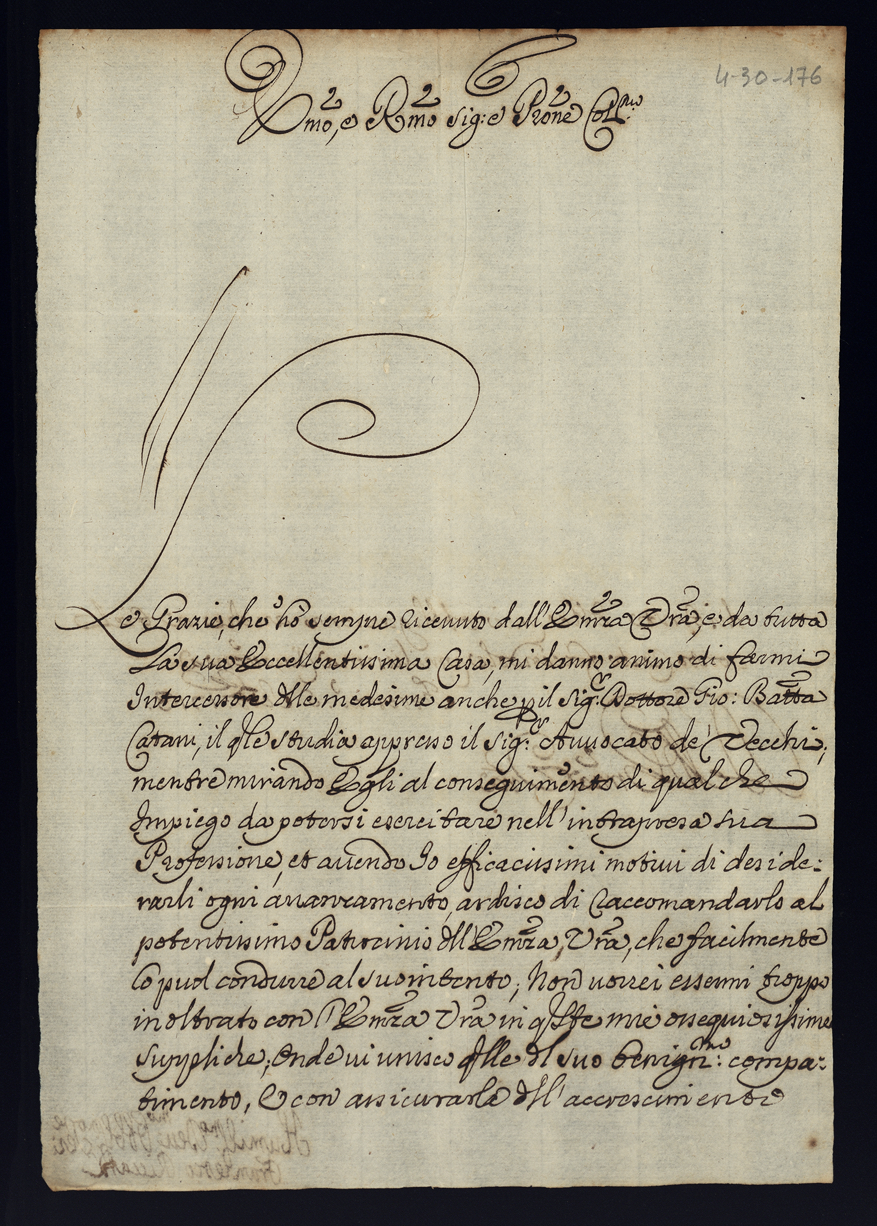 4-30-176
Emo, e Rmo Sig: e Prone Col:mo
Le Grazie, che hò sempre ricevuto dall'Emza Vra, e da tutta
La sua Eccellentissima Casa, mi danno animo di farmi
Intercessore dlle medesime anche p il Sig:r Dottore Gio: Batta
Catani, il qle studia appresso il Sig:r Avvocato de' Vecchi;
mentre mirando Egli al conseguimento di qualche
Impiego da potersi esercitare nell'intrapresa sua
Professione, et avendo Io efficacissimi motivi di deside:
rarli ogni avanzamento, ardisco di Raccomandarlo al
potentissimo Patrocinio dll'Emza Vra, che facilmente
lo puol condurre al suo intento; Non vorrei essermi troppo
inoltrato con l'Emza Vra in qste mie ossequiosissime
suppliche; Onde vi unisco qlle dl suo benign:mo compa:
timento, & con assicurarla dll'accrescimento